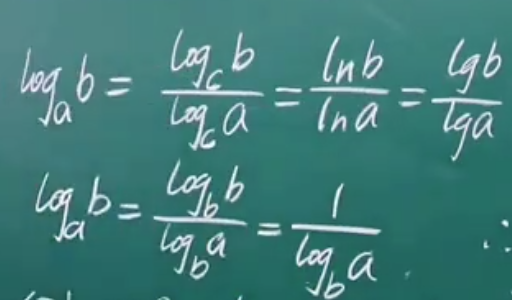 logₐb = log_c b / log_c a = ln b / ln a = lg b / lg a
logₐb = log_b b / log_b a = 1 / log_b a ∴